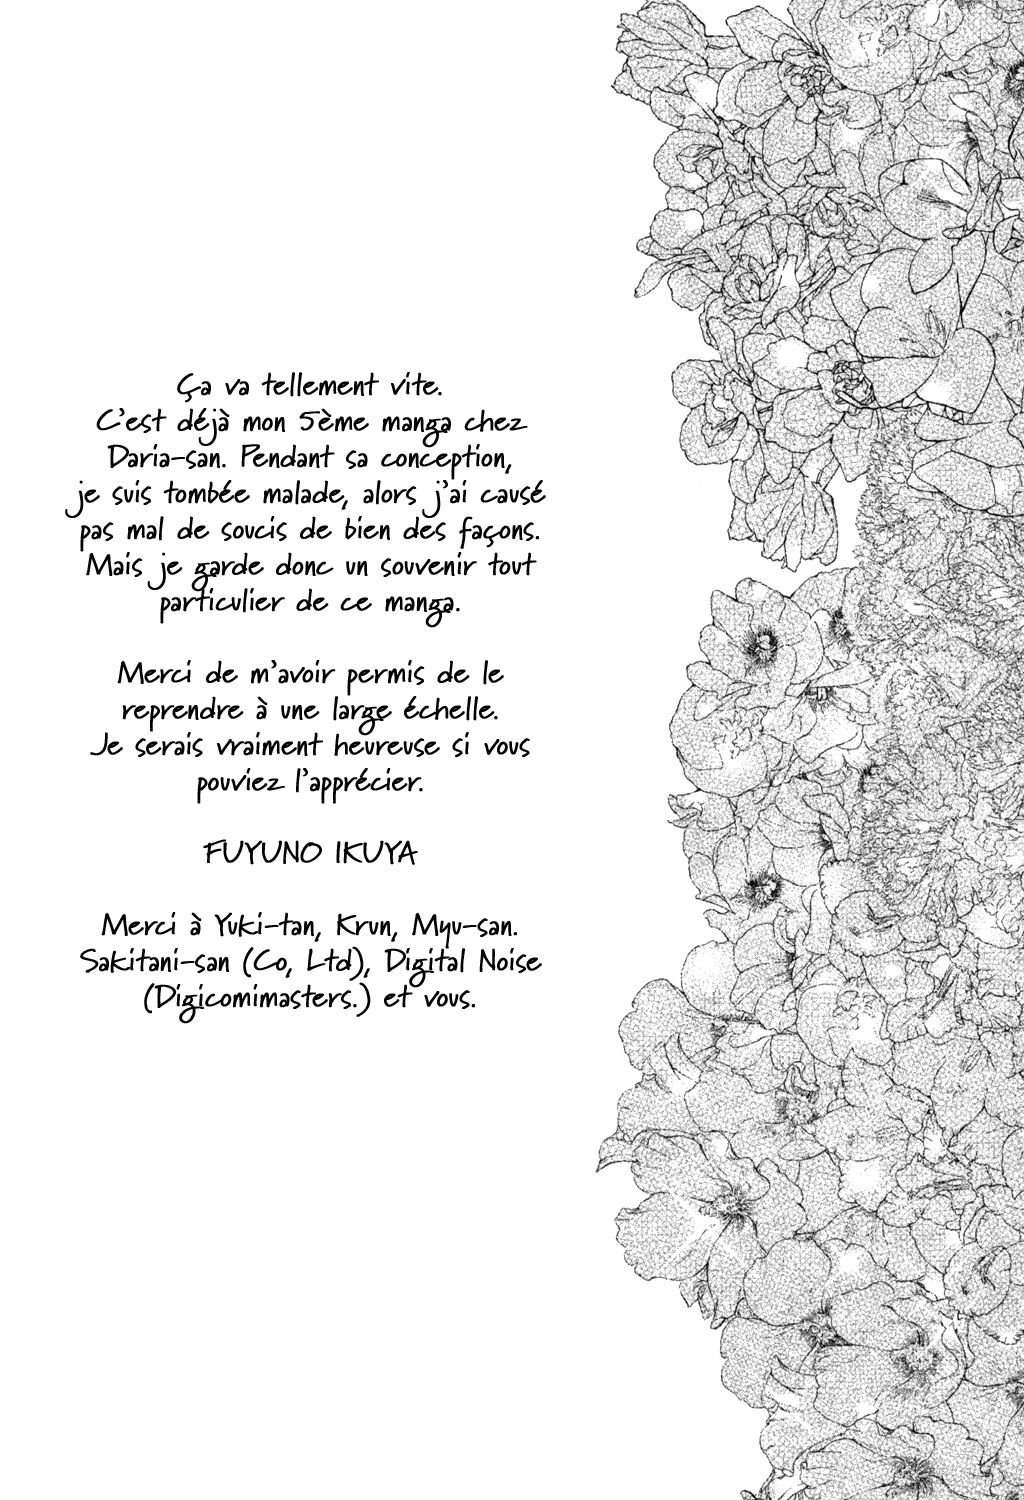 Ça va tellement vite.
C'est déjà mon 5ème manga chez
Daria-san. Pendant sa conception,
je suis tombée malade, alors j'ai causé
pas mal de soucis de bien des façons.
Mais je garde donc un souvenir tout
particulier de ce manga.
Merci de m'avoir permis de le
reprendre à une large échelle.
Je serais vraiment heureuse si vous
pouviez l'apprécier.
FUYUNO IKUYA
Merci à Yuki-tan, Krun, Myu-san.
Sakitani-san (Co, Ltd), Digital Noise
(Digicomimasters.) et vous.